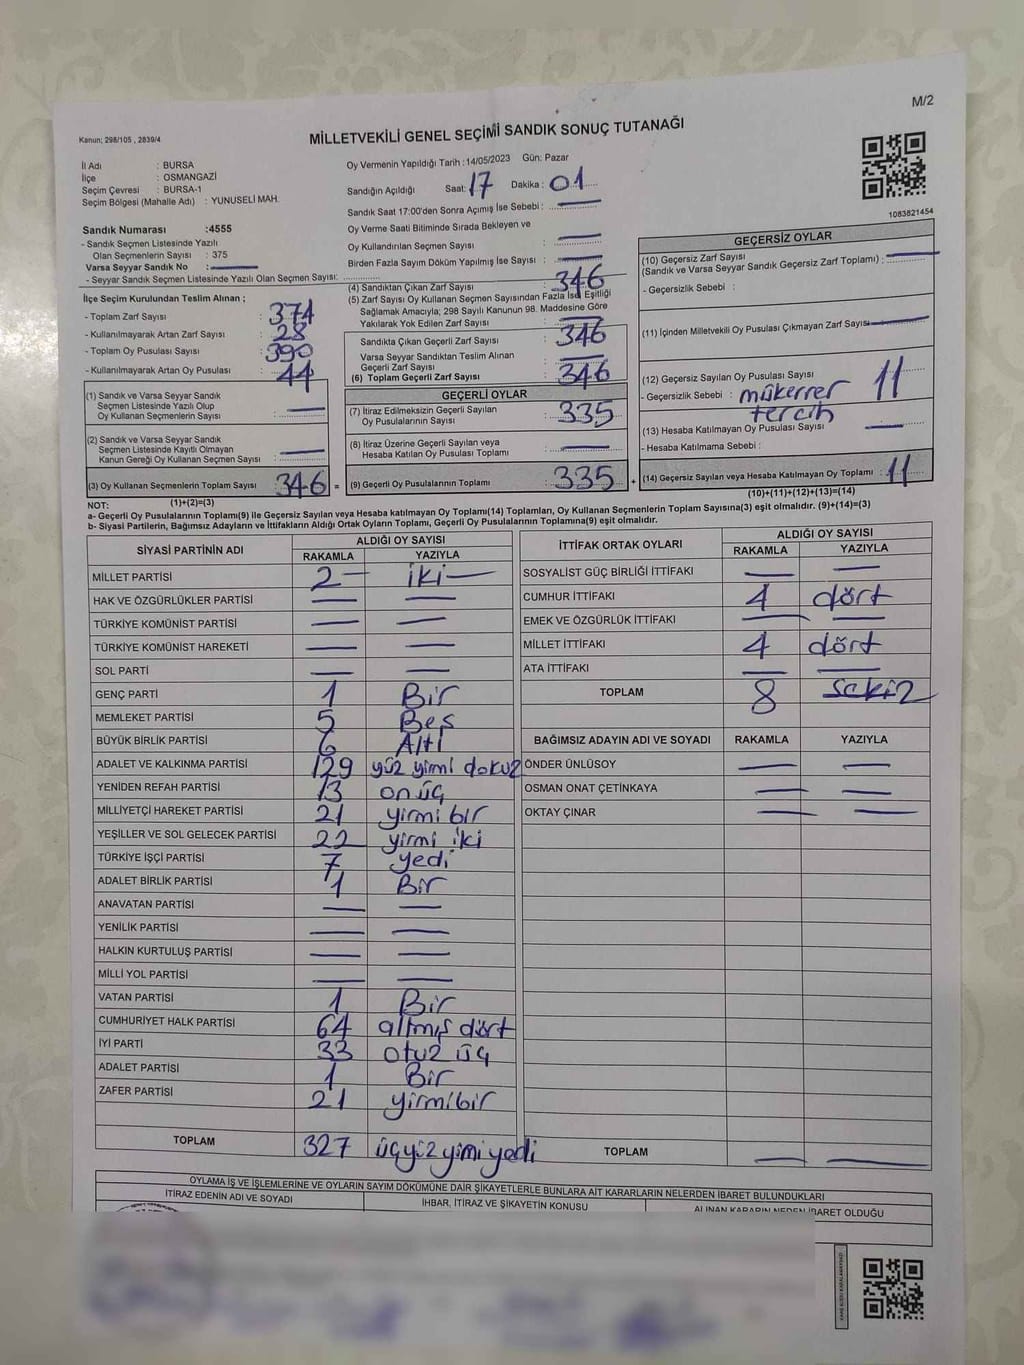 M/2
Kanun; 298/105 , 2839/4
MİLLETVEKİLİ GENEL SEÇİMİ SANDIK SONUÇ TUTANAĞI
İl Adı : BURSA
İlçe : OSMANGAZİ
Seçim Çevresi : BURSA-1
Seçim Bölgesi (Mahalle Adı) : YUNUSELİ MAH.
Sandık Numarası :4555
- Sandık Seçmen Listesinde Yazılı
Olan Seçmenlerin Sayısı : 375
Varsa Seyyar Sandık No :
- Seyyar Sandık Seçmen Listesinde Yazılı Olan Seçmen Sayısı:
Oy Vermenin Yapıldığı Tarih :14/05/2023 Gün: Pazar
Sandığın Açıldığı Saat: 17 Dakika : 01
Sandık Saat 17:00'den Sonra Açımış İse Sebebi :
Oy Verme Saati Bitiminde Sırada Bekleyen ve
Oy Kullandırılan Seçmen Sayısı :
Birden Fazla Sayım Döküm Yapılmış İse Sayısı :
1083821454
İlçe Seçim Kurulundan Teslim Alınan ;
- Toplam Zarf Sayısı : 374
- Kullanılmayarak Artan Zarf Sayısı : 28
- Toplam Oy Pusulası Sayısı : 390
- Kullanılmayarak Artan Oy Pusulası : 44
(1) Sandık ve Varsa Seyyar Sandık
Seçmen Listesinde Yazılı Olup
Oy Kullanan Seçmenlerin Sayısı :
(2) Sandık ve Varsa Seyyar Sandık
Seçmen Listesinde Kayıtlı Olmayan
Kanun Gereği Oy Kullanan Seçmen Sayısı :
(3) Oy Kullanan Seçmenlerin Toplam Sayısı : 346 =
(1)+(2)=(3)
(4) Sandıktan Çıkan Zarf Sayısı : 346
(5) Zarf Sayısı Oy Kullanan Seçmen Sayısından Fazla İse, Eşitliği
Sağlamak Amacıyla; 298 Sayılı Kanunun 98. Maddesine Göre
Yakılarak Yok Edilen Zarf Sayısı :
Sandıkta Çıkan Geçerli Zarf Sayısı : 346
Varsa Seyyar Sandıktan Teslim Alınan
Geçerli Zarf Sayısı :
(6) Toplam Geçerli Zarf Sayısı : 346
GEÇERLİ OYLAR
(7) İtiraz Edilmeksizin Geçerli Sayılan
Oy Pusulalarının Sayısı : 335
(8) İtiraz Üzerine Geçerli Sayılan veya
Hesaba Katılan Oy Pusulası Toplamı :
(9) Geçerli Oy Pusulalarının Toplamı : 335 +
GEÇERSİZ OYLAR
(10) Geçersiz Zarf Sayısı
(Sandık ve Varsa Seyyar Sandık Geçersiz Zarf Toplamı) :
- Geçersizlik Sebebi :
(11) İçinden Milletvekili Oy Pusulası Çıkmayan Zarf Sayısı
(12) Geçersiz Sayılan Oy Pusulası Sayısı : 11
- Geçersizlik Sebebi : mükerrer
tercih
(13) Hesaba Katılmayan Oy Pusulası Sayısı :
- Hesaba Katılmama Sebebi :
(14) Geçersiz Sayılan veya Hesaba Katılmayan Oy Toplamı : 11
(10)+(11)+(12)+(13)=(14)
NOT:
a- Geçerli Oy Pusulalarının Toplamı(9) ile Geçersiz Sayılan veya Hesaba katılmayan Oy Toplamı(14) Toplamları, Oy Kullanan Seçmenlerin Toplam Sayısına(3) eşit olmalıdır. (9)+(14)=(3)
b- Siyasi Partilerin, Bağımsız Adayların ve İttifakların Aldığı Ortak Oyların Toplamı, Geçerli Oy Pusulalarının Toplamına(9) eşit olmalıdır.
SİYASİ PARTİNİN ADI ALDIĞI OY SAYISI
RAKAMLA YAZIYLA
MİLLET PARTİSİ 2 iki
HAK VE ÖZGÜRLÜKLER PARTİSİ
TÜRKİYE KOMÜNİST PARTİSİ
TÜRKİYE KOMÜNİST HAREKETİ
SOL PARTİ
GENÇ PARTİ 1 Bir
MEMLEKET PARTİSİ 5 Beş
BÜYÜK BİRLİK PARTİSİ 6 Altı
ADALET VE KALKINMA PARTİSİ 129 yüz yirmi dokuz
YENİDEN REFAH PARTİSİ 13 on üç
MİLLİYETÇİ HAREKET PARTİSİ 21 yirmi bir
YEŞİLLER VE SOL GELECEK PARTİSİ 22 yirmi iki
TÜRKİYE İŞÇİ PARTİSİ 7 yedi
ADALET BİRLİK PARTİSİ 1 Bir
ANAVATAN PARTİSİ
YENİLİK PARTİSİ
HALKIN KURTULUŞ PARTİSİ
MİLLİ YOL PARTİSİ
VATAN PARTİSİ 1 Bir
CUMHURİYET HALK PARTİSİ 64 altmış dört
İYİ PARTİ 33 otuz üç
ADALET PARTİSİ 1 Bir
ZAFER PARTİSİ 21 yirmibir
TOPLAM 327 üçyüz yimi yedi
İTTİFAK ORTAK OYLARI ALDIĞI OY SAYISI
RAKAMLA YAZIYLA
SOSYALİST GÜÇ BİRLİĞİ İTTİFAKI
CUMHUR İTTİFAKI 4 dört
EMEK VE ÖZGÜRLÜK İTTİFAKI
MİLLET İTTİFAKI 4 dört
ATA İTTİFAKI
TOPLAM 8 sekiz
BAĞIMSIZ ADAYIN ADI VE SOYADI RAKAMLA YAZIYLA
ÖNDER ÜNLÜSOY
OSMAN ONAT ÇETİNKAYA
OKTAY ÇINAR
TOPLAM
OYLAMA İŞ VE İŞLEMLERİNE VE OYLARIN SAYIM DÖKÜMÜNE DAİR ŞİKAYETLERLE BUNLARA AİT KARARLARIN NELERDEN İBARET BULUNDUKLARI
İTİRAZ EDENİN ADI VE SOYADI İHBAR, İTİRAZ VE ŞİKAYETİN KONUSU ALINAN KARARIN NEDEN İBARET OLDUĞU